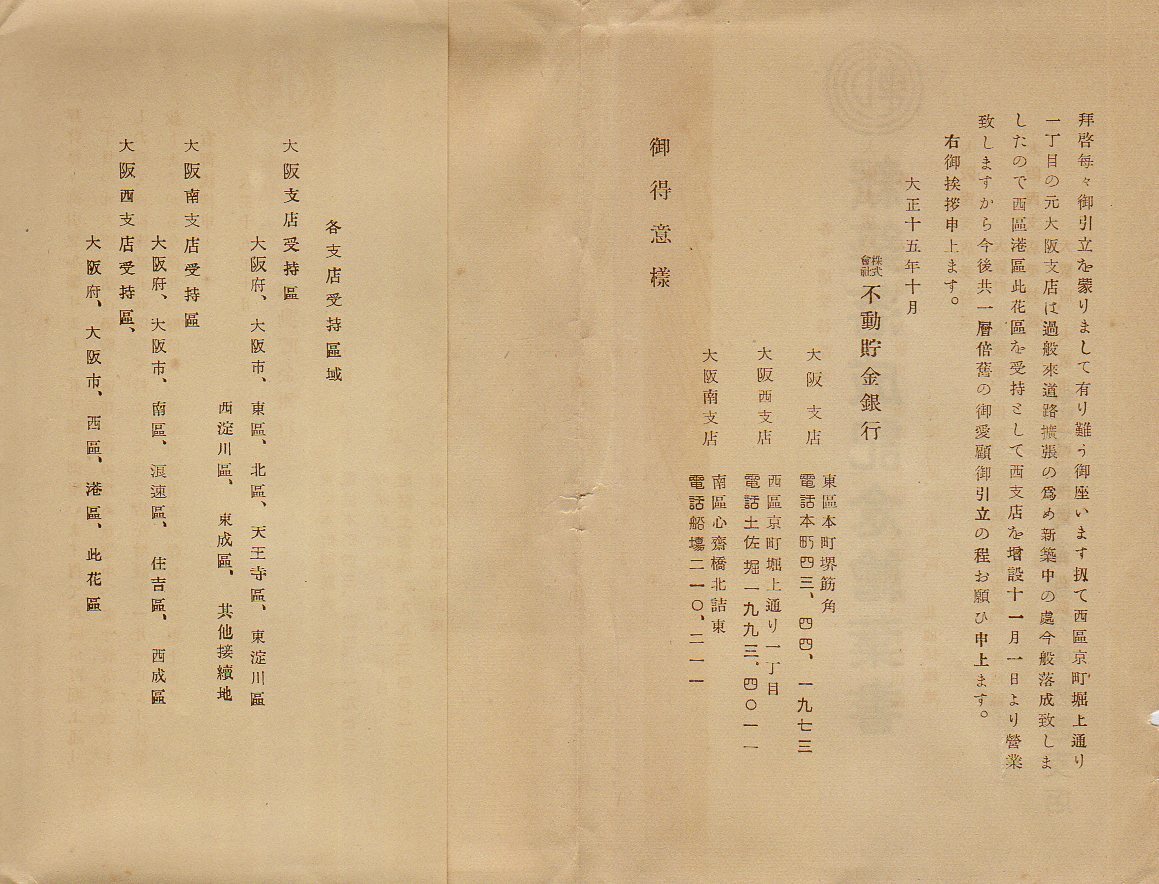 拝啓毎々御引立を蒙りまして有り難う御座います扨て西區京町堀上通り
一丁目の元大阪支店は過般來道路擴張の爲め新築中の處今般落成致しま
したので西區港區此花區を受持として西支店を增設十一月一日より營業
致しますから今後共一層倍舊の御愛顧御引立の程お願ひ申上ます。
右御挨拶申上ます。
大正十五年十月
株式會社 不動貯金銀行
大阪支店 東區本町堺筋角
電話本町四三、四四、一九七三
大阪西支店 西區京町堀上通り一丁目
電話土佐堀一九九三、四〇一一
大阪南支店 南區心齋橋北詰東
電話船塲二一〇、二一一
御得意樣
各支店受持區域
大阪支店受持區
大阪府、大阪市、東區、北區、天王寺區、東淀川區
西淀川區、東成區、其他接續地
大阪南支店受持區
大阪府、大阪市、南區、浪速區、住吉區、西成區
大阪西支店受持區、
大阪府、大阪市、西區、港區、此花區